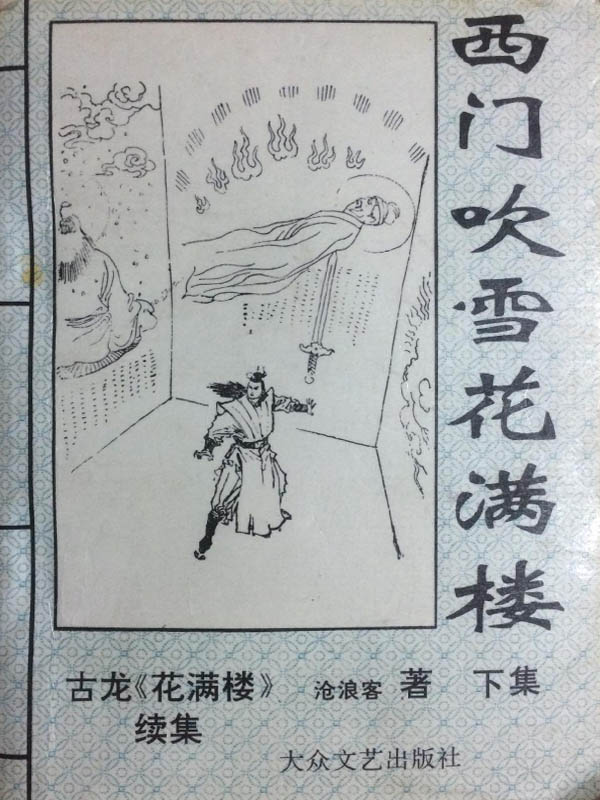 西门吹雪花满楼
古龙《花满楼》
续集
沧浪客 著 下集
大众文艺出版社